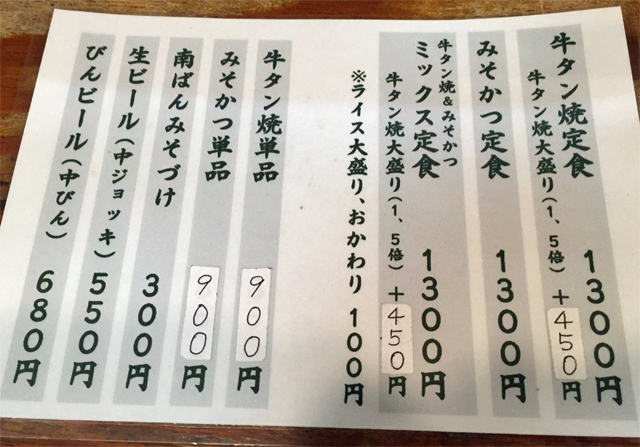 牛タン焼定食 1300円
牛タン焼大盛り(1、5倍) +450円
みそかつ定食 1300円
牛タン焼&みそかつ
ミックス定食 1300円
牛タン焼大盛り(1、5倍) +450円
※ライス大盛り、おかわり 100円
牛タン焼単品 900円
みそかつ単品 900円
南ばんみそづけ 300円
生ビール(中ジョッキ) 550円
びんビール(中びん) 680円